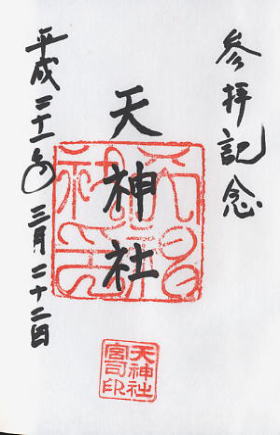 参拝記念
天神社
天神社
宮司印
平成二十一年三月二十二日